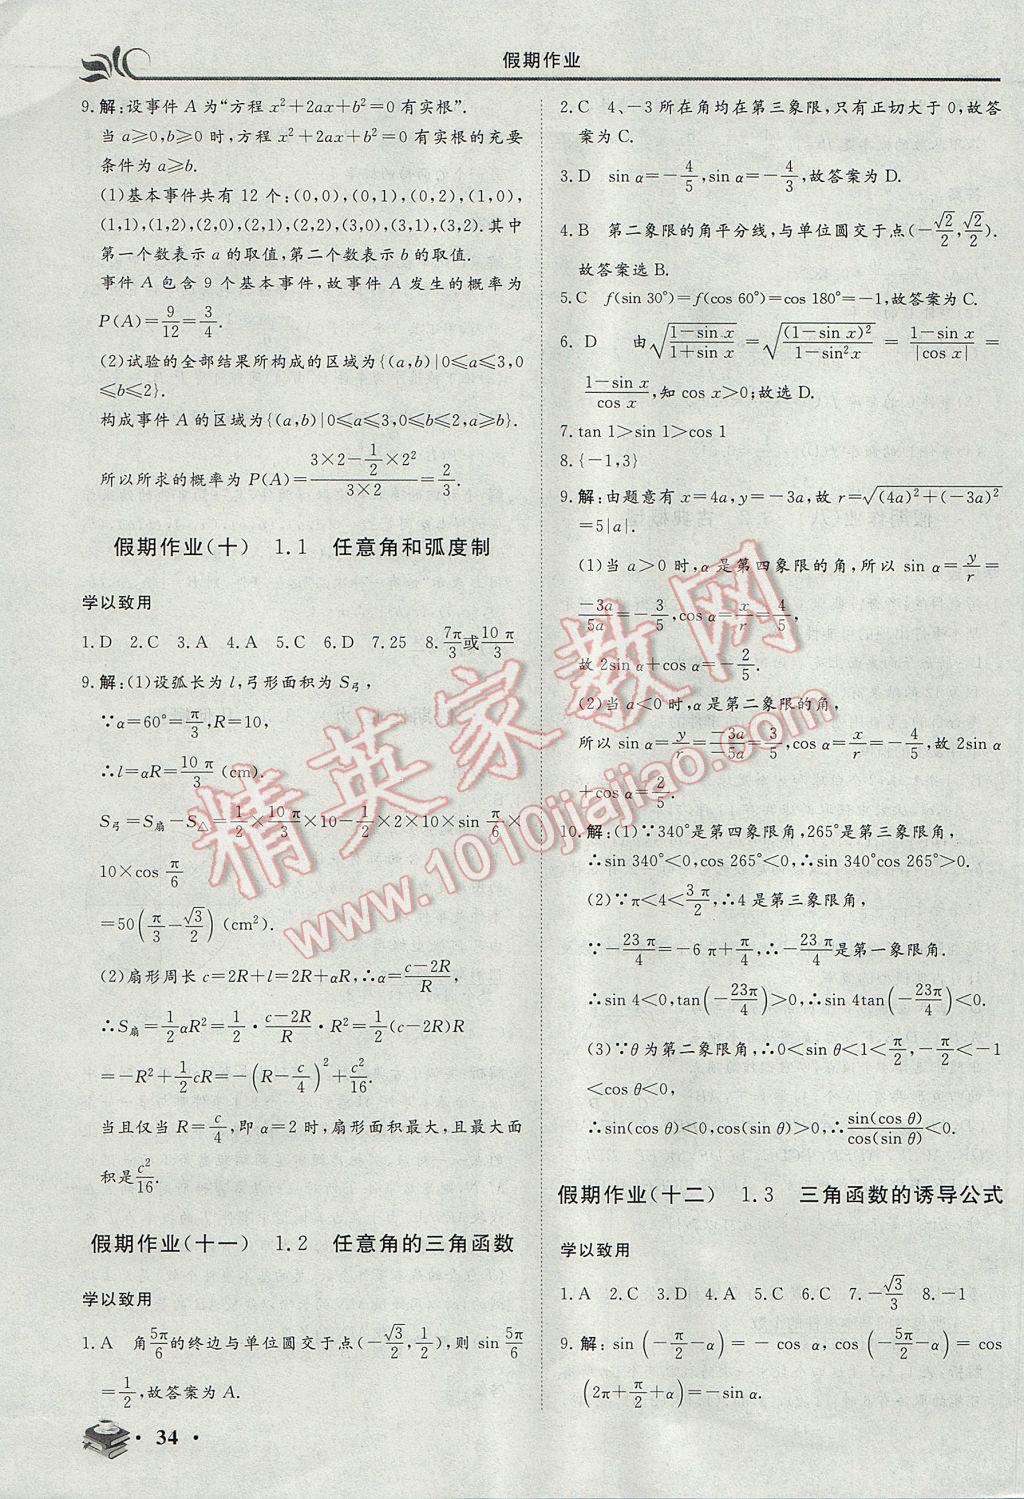 假期作业
9.解:设事件A为“方程x²+2ax+b²=0有实根”.
当a≥0,b≥0时,方程x²+2ax+b²=0有实根的充要
条件为a≥b.
(1)基本事件共有12个:(0,0),(0,1),(0,2),(1,0),
(1,1),(1,2),(2,0),(2,1),(2,2),(3,0),(3,1),(3,2).其中
第一个数表示a的取值,第二个数表示b的取值.
事件A包含9个基本事件,故事件A发生的概率为
P(A)=9/12=3/4.
(2)试验的全部结果所构成的区域为{(a,b)|0≤a≤3,0
≤b≤2}.
构成事件A的区域为{(a,b)|0≤a≤3,0≤b≤2,a≥b}.
所以所求的概率为P(A)=(3×2-1/2×2²)/(3×2)=2/3.
假期作业(十) 1.1 任意角和弧度制
学以致用
1.D 2.C 3.A 4.A 5.C 6.D 7.25 8.7π/3或10π/3
9.解:(1)设弧长为l,弓形面积为S弓,
∵α=60°=π/3,R=10,
∴l=αR=10π/3(cm).
S弓=S扇-S△=1/2×10π/3×10-1/2×2×10×sin π/6×
10×cos π/6
=50(π/3-√3/2)(cm²).
(2)扇形周长c=2R+l=2R+αR,∴α=(c-2R)/R,
∴S扇=1/2αR²=1/2·(c-2R)/R·R²=1/2(c-2R)R
=-R²+1/2cR=-(R-c/4)²+c²/16.
当且仅当R=c/4,即α=2时,扇形面积最大,且最大面
积是c²/16.
假期作业(十一) 1.2 任意角的三角函数
学以致用
1.A 角5π/6的终边与单位圆交于点(-√3/2,1/2),则sin 5π/6
=1/2,故答案为A.
2.C 4、-3所在角均在第三象限,只有正切大于0,故答
案为C.
3.D sin α=-4/5,sin α=-4/3,故答案为D.
4.B 第二象限的角平分线,与单位圆交于点(-√2/2,√2/2).
故答案选B.
5.C f(sin 30°)=f(cos 60°)=cos 180°=-1,故答案为C.
6.D 由√((1-sin x)/(1+sin x))=√((1-sin x)²/(1-sin²x))=(1-sin x)/|cos x|=
(1-sin x)/cos x,知cos x>0;故选D.
7.tan 1>sin 1>cos 1
8.{-1,3}
9.解:由题意有x=4a,y=-3a,故r=√((4a)²+(-3a)²)
=5|a|.
(1)当a>0时,α是第四象限的角,所以sin α=y/r=
-3a/5a=-3/5,cos α=x/r=4/5,
故2sin α+cos α=-2/5.
(2)当a<0时,α是第二象限的角,
所以sin α=y/r=-3a/-5a=3/5,cos α=x/r=-4/5,故2sin α
+cos α=2/5.
10.解:(1)∵340°是第四象限角,265°是第三象限角,
∴sin 340°<0,cos 265°<0,∴sin 340°cos 265°>0.
(2)∵π<4<3π/2,∴4是第三象限角,
∵-23π/4=-6π+π/4,∴-23π/4是第一象限角.
∴sin 4<0,tan(-23π/4)>0,∴sin 4tan(-23π/4)<0.
(3)∵θ为第二象限角,∴0<sin θ<1<π/2,-π/2<-1
<cos θ<0,
∴sin(cos θ)<0,cos(sin θ)>0,∴sin(cos θ)/cos(sin θ)<0.
假期作业(十二) 1.3 三角函数的诱导公式
学以致用
1.A 2.C 3.D 4.A 5.C 6.C 7.-√3/3 8.-1
9.解:sin(-π/2-α)=-cos α,cos(-5π/2-α)=cos
(2π+π/2+α)=-sin α.
·34·
精英家教网
www.1010jiajiao.com